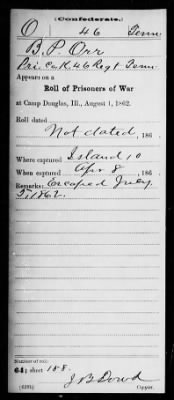 (Confederate.)
O 46 Tenn.
B. P. Orr
Pri. Co K, 46 Regt Tenn.
Appears on a
Roll of Prisoners of War
at Camp Douglas, Ill., August 1, 1862.
Roll dated
Not dated, 186 .
Where captured Island 10
When captured Apr 8, 186 .
Remarks: Escaped July
1862.
Number of roll:
64; sheet 188.
J B Dowd
Copyist.